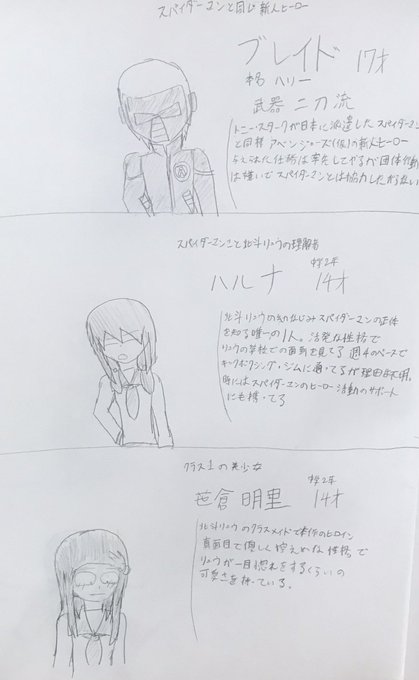 スパイダーマンと同じ新人ヒーロー
ブレイド 17才
本名 ハリー
武器 二刀流
トニー・スタークが日本に派遣したスパイダーマン
と同様 アベンジャーズ(仮)の新人ヒーロー
与えられた仕事は率先してやるが団体行動
は嫌いでスパイダーマンとは協力したがらない
スパイダーマンこと北斗リュウの理解者
中学2年
ハルナ 14才
北斗リュウの幼なじみスパイダーマンの正体
を知る唯一の1人。活発な性格で
リュウの学校での面倒を見てる 週4のペースで
キックボクシング・ジムに通ってるが理由は不明。
時にはスパイダーマンのヒーロー活動のサポート
にも携ってる
クラス1の美少女
中学2年
笹倉 明里 14才
北斗リュウのクラスメイドで本作のヒロイン
真面目で優しく控えめな性格で
リュウが一目惚れをするくらいの
可愛さを持っている。